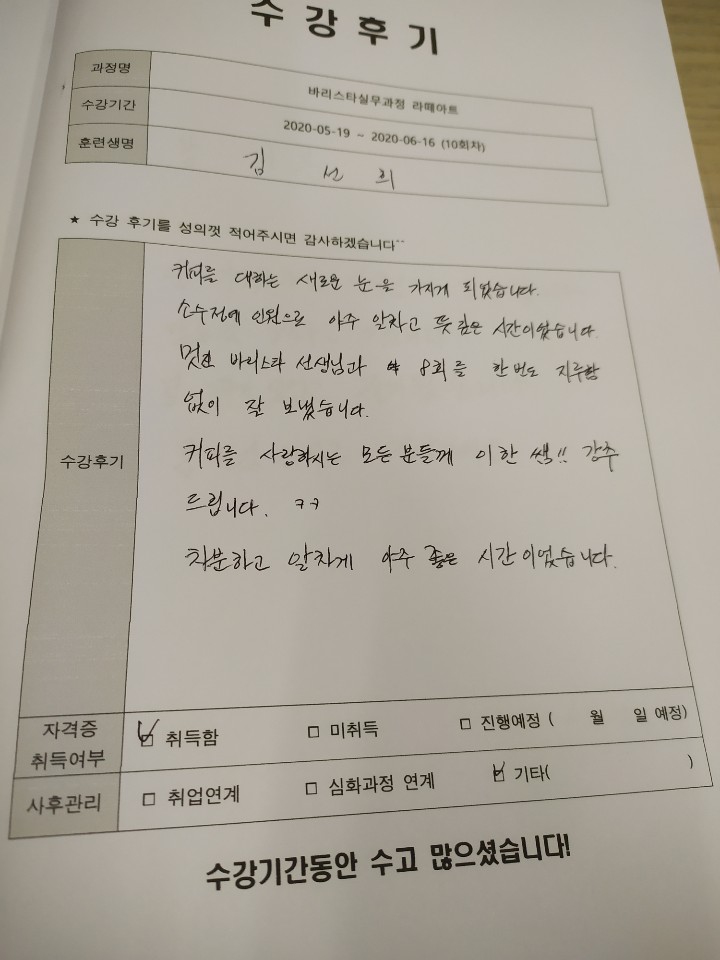 수 강 후 기
과정명
바리스타실무과정 라떼아트
수강기간
2020-05-19 ~ 2020-06-16 (10회차)
훈련생명
김 선 희
★ 수강 후기를 성의껏 적어주시면 감사하겠습니다^^
수강후기
커피를 대하는 새로운 눈을 가지게 되었습니다.
소수정예 인원으로 아주 알차고 뜻깊은 시간이었습니다.
멋진 바리스타 선생님과 8회를 한번도 지루함
없이 잘 보냈습니다.
커피를 사랑하시는 모든분들께 이한 쌤!! 강추
드립니다. ㅋㅋ
차분하고 알차게 아주 좋은 시간이었습니다.
자격증
취득여부
☑ 취득함 □ 미취득 □ 진행예정 ( 월 일 예정)
사후관리
□ 취업연계 □ 심화과정 연계 ☑ 기타( )
수강기간동안 수고 많으셨습니다!